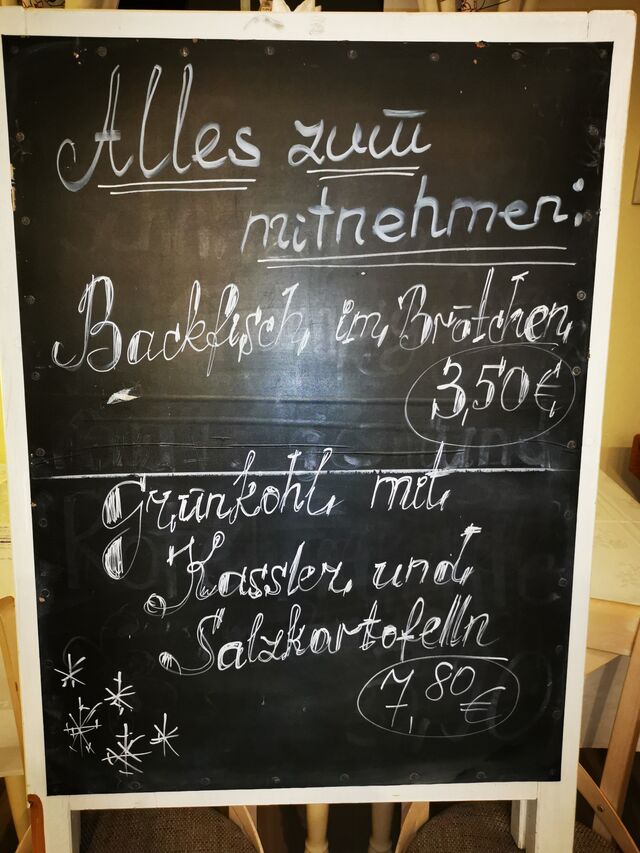 Alles zum
mitnehmen:
Backfisch im Brötchen
3,50 €
Grünkohl mit
Kassler und
Salzkartofelln
7,80 €